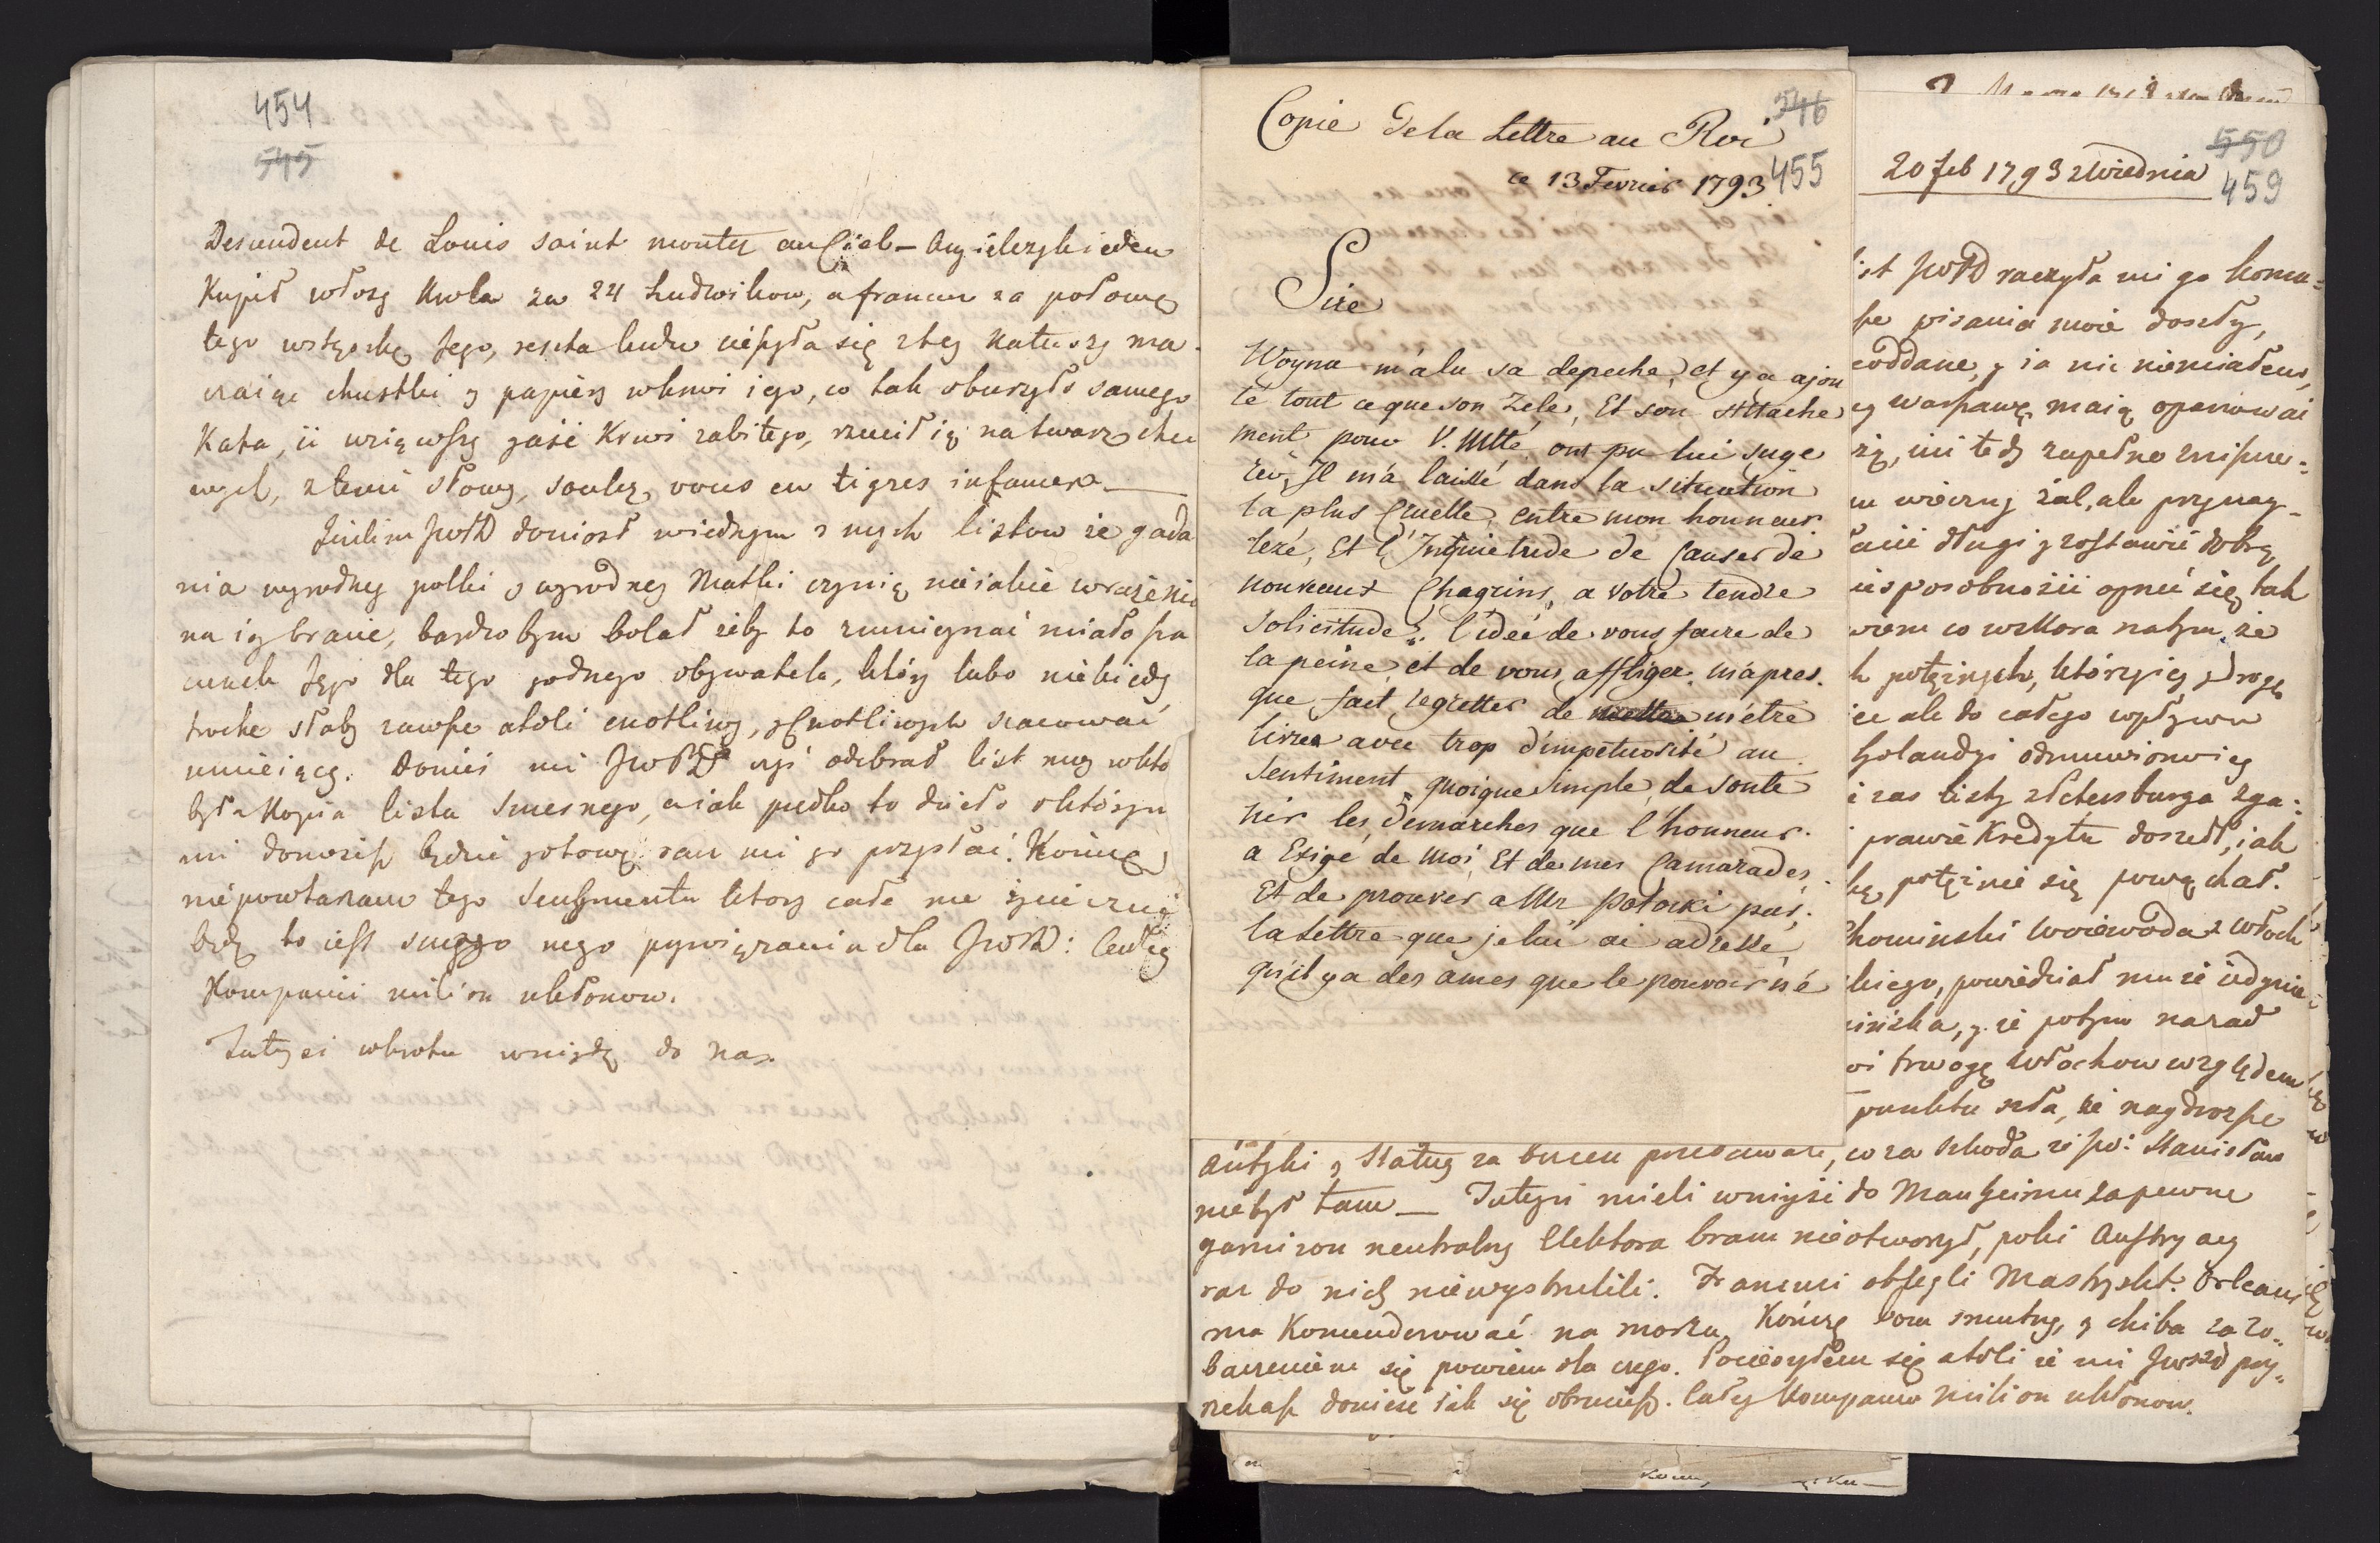 454
545
Descendent de Louis saint montez au Ciel – Angielczyk ieden
Kupił włosy Krola za 24 Ludwikow, a francuz za połowę
tego wstążkę Jego, reszta ludu
czaiąc chustki y papiery w krwi iego, co tak oburzyło samego
Kata, iż wziąwszy garść Krwi zabitego, rzucił ią na twarz
z temi słowy, soulez vous en tigres infames. —
JWPD doniosł w iednym z mych listow że gada
nia wyrodney polki o wyrodney Matki czynią nieiakie wrażenie
na iey bracie, bardzo bym bolał żeby to zmnieyszać miało sza
cunek Jego dla tego godnego obywatela, ktory lubo niekiedy
troche słaby zawsze atoli cnotliwy, y Cnotliwych szacować
umieiący. Donieś mi JWPD czyś odebrał list moy w kto
była Kopia listu Smesnego, a iak prędko to dzieło o ktorym
mi donosisz będzie gotowe racz mi go przysłać. Kończę
niepowtarzam tego Sentymentu ktory całe me życie czuć
będę to iest mego przywiązania dla JWPD: Całey
Kompanii milion ukłonow.
Jutrzei w kwotu wniydą do nas.
546
455
Copie de la Lettre au Roi
ce 13 Fevrier 1793
Sire
Woyna m'a lu sa depeche, et y a ajou
té tout ce que son Zele, Et son Attache
ment pour V. Mtté ont pu lui suge
rer, Il m'a laissé dans la situation
la plus Cruelle, entre mon honneur
lezé, Et l'Inquietude de Causer de
nouveaux Chagrins a votre tendre
Solicitude. l'idée de vous faire de
la peine, et de vous affliger, m'a pres.
que fait regretter de m'etre
livrer avec trop d'impetuosité au
Sentiment quoique simple, de soute
nir les demarches que l'honneur
a Exigé de Moi, Et de mes Camarades,
Et de prouver a Mr Potocki par
la Lettre que je lui ai adressé,
qu'il y a des ames que le pouvoir ne
550
459
20 feb 1793 z Wiednia
ist JWPD raczyła mi go komu-
sze pisania moie doszły,
eoddane, y ia nic niemiałem,
ey warszawę maią opanować
zę, mi tedy zapełno
u wieczny żal, ale przynay-
łacić długi y zostawić dobrą
iesposobności oprzeć się, tak
wiem co wskora na tym, że
h potężnych, ktorzy iey drogę
ie ale do całego wpływu
holandyi odmuwionwiey
i zas listy z Petersburga zga-
prawie Kredytu doszedł, iak
kę potężnie się powąchał.
Chominski Woiewoda z włoch
kiego, powiedział mu że iedynie
, y że potym narad
oi trwogę Włochow względem
punktu szła, że naydroższe
Antyki y Statuy za bezcen przedawane, co za szkoda że JP: Stanisław
niebył tam — Jutrzei mieli wniyść do Manheimu zapewne
garnizon neutralny Elektora bram nieotworzył, poki Austryacy
raz do nich niewystrzelili. Francuzi oblegli Mastrycht. Orleans
ma Komenderować na morzu. Kończę bom smutny, y chiba za zo-
baczeniem się powiem dla czego. Pocieszyłem się atoli że mi JWPD przy-
rzekasz donieść iak się obrucisz. Całey Kompanii milion ukłonow.